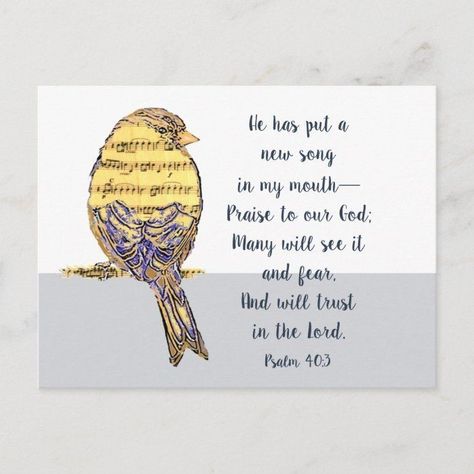 He has put a
new song
in my mouth—
Praise to our God;
Many will see it
and fear,
And will trust
in the Lord.
Psalm 40:3